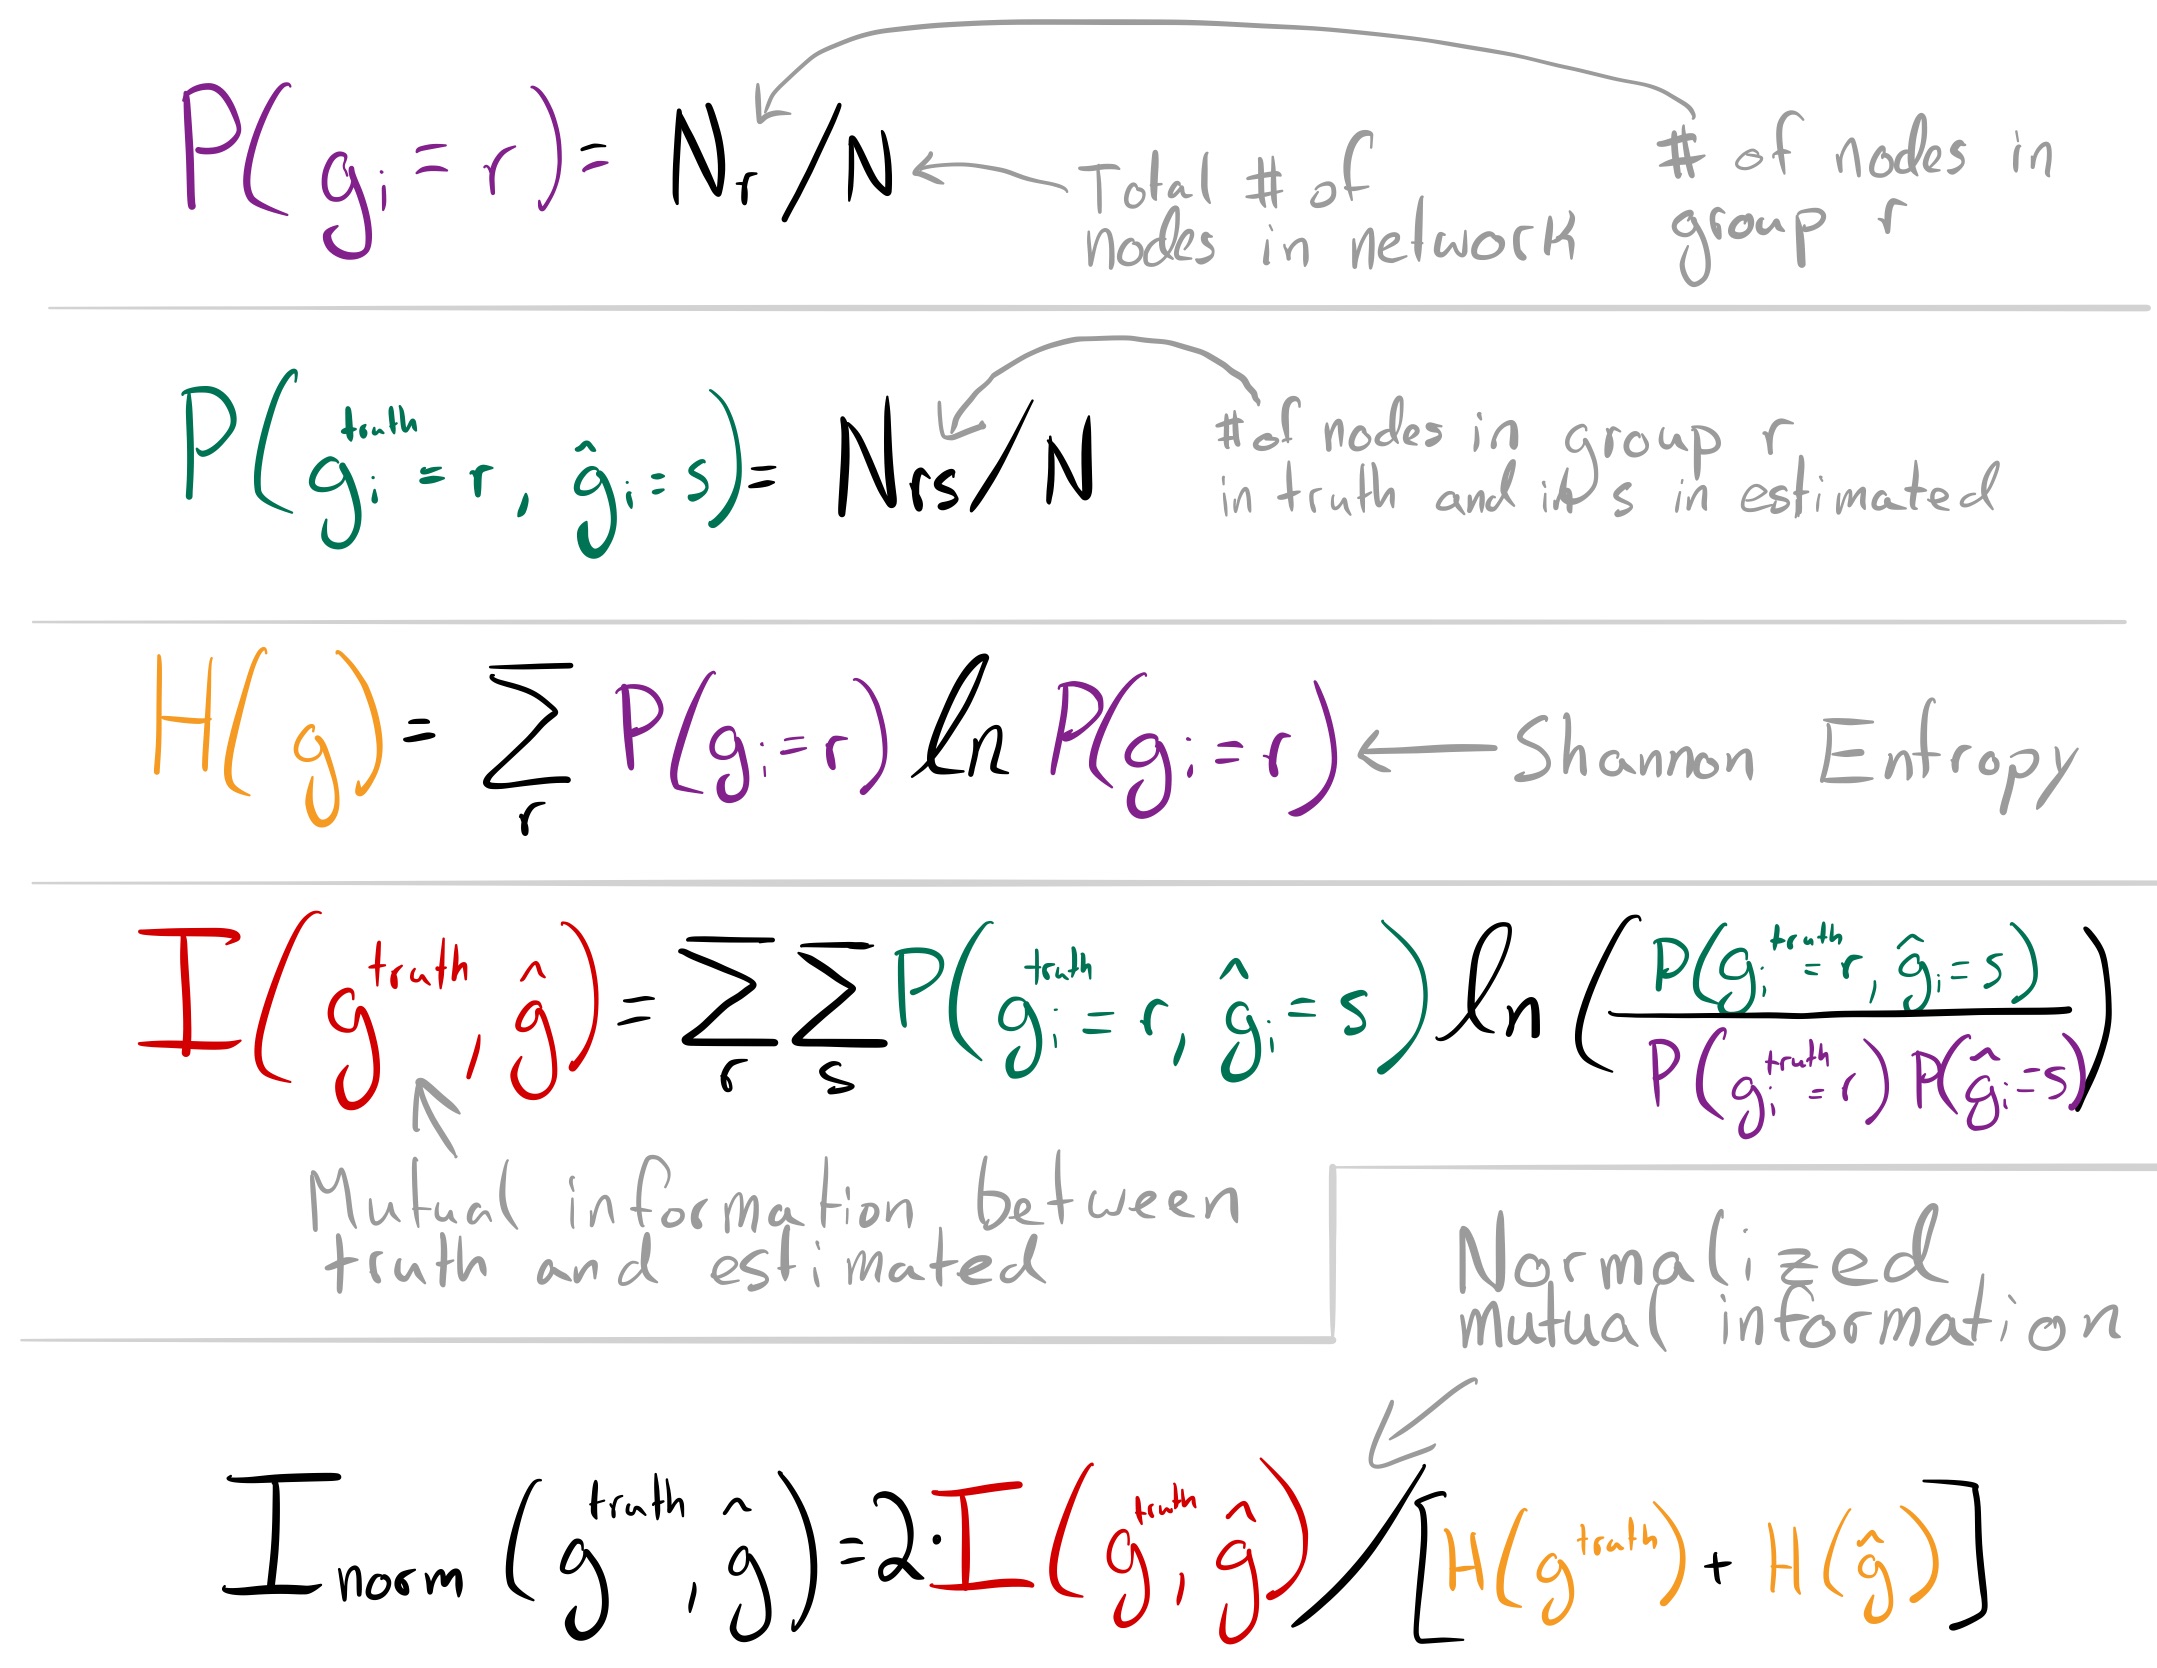 P(gᵢ = r) = Nᵣ/N
Total # of
nodes in network
# of nodes in
group r
P(gᵢ^truth = r, ĝᵢ = s) = Nᵣₛ/N
# of nodes in group r
in truth and in s in estimated
H(g) = Σ_r P(gᵢ = r) ln P(gᵢ = r)
Shannon Entropy
I(g^truth, ĝ) = Σ_r Σ_s P(gᵢ^truth = r, ĝᵢ = s) ln (P(gᵢ^truth = r, ĝᵢ = s) / P(gᵢ^truth = r) P(ĝᵢ = s))
Mutual information between
truth and estimated
Normalized
mutual information
I_norm (g^truth, ĝ) = 2·I(g^truth, ĝ)/[H(g^truth) + H(ĝ)]